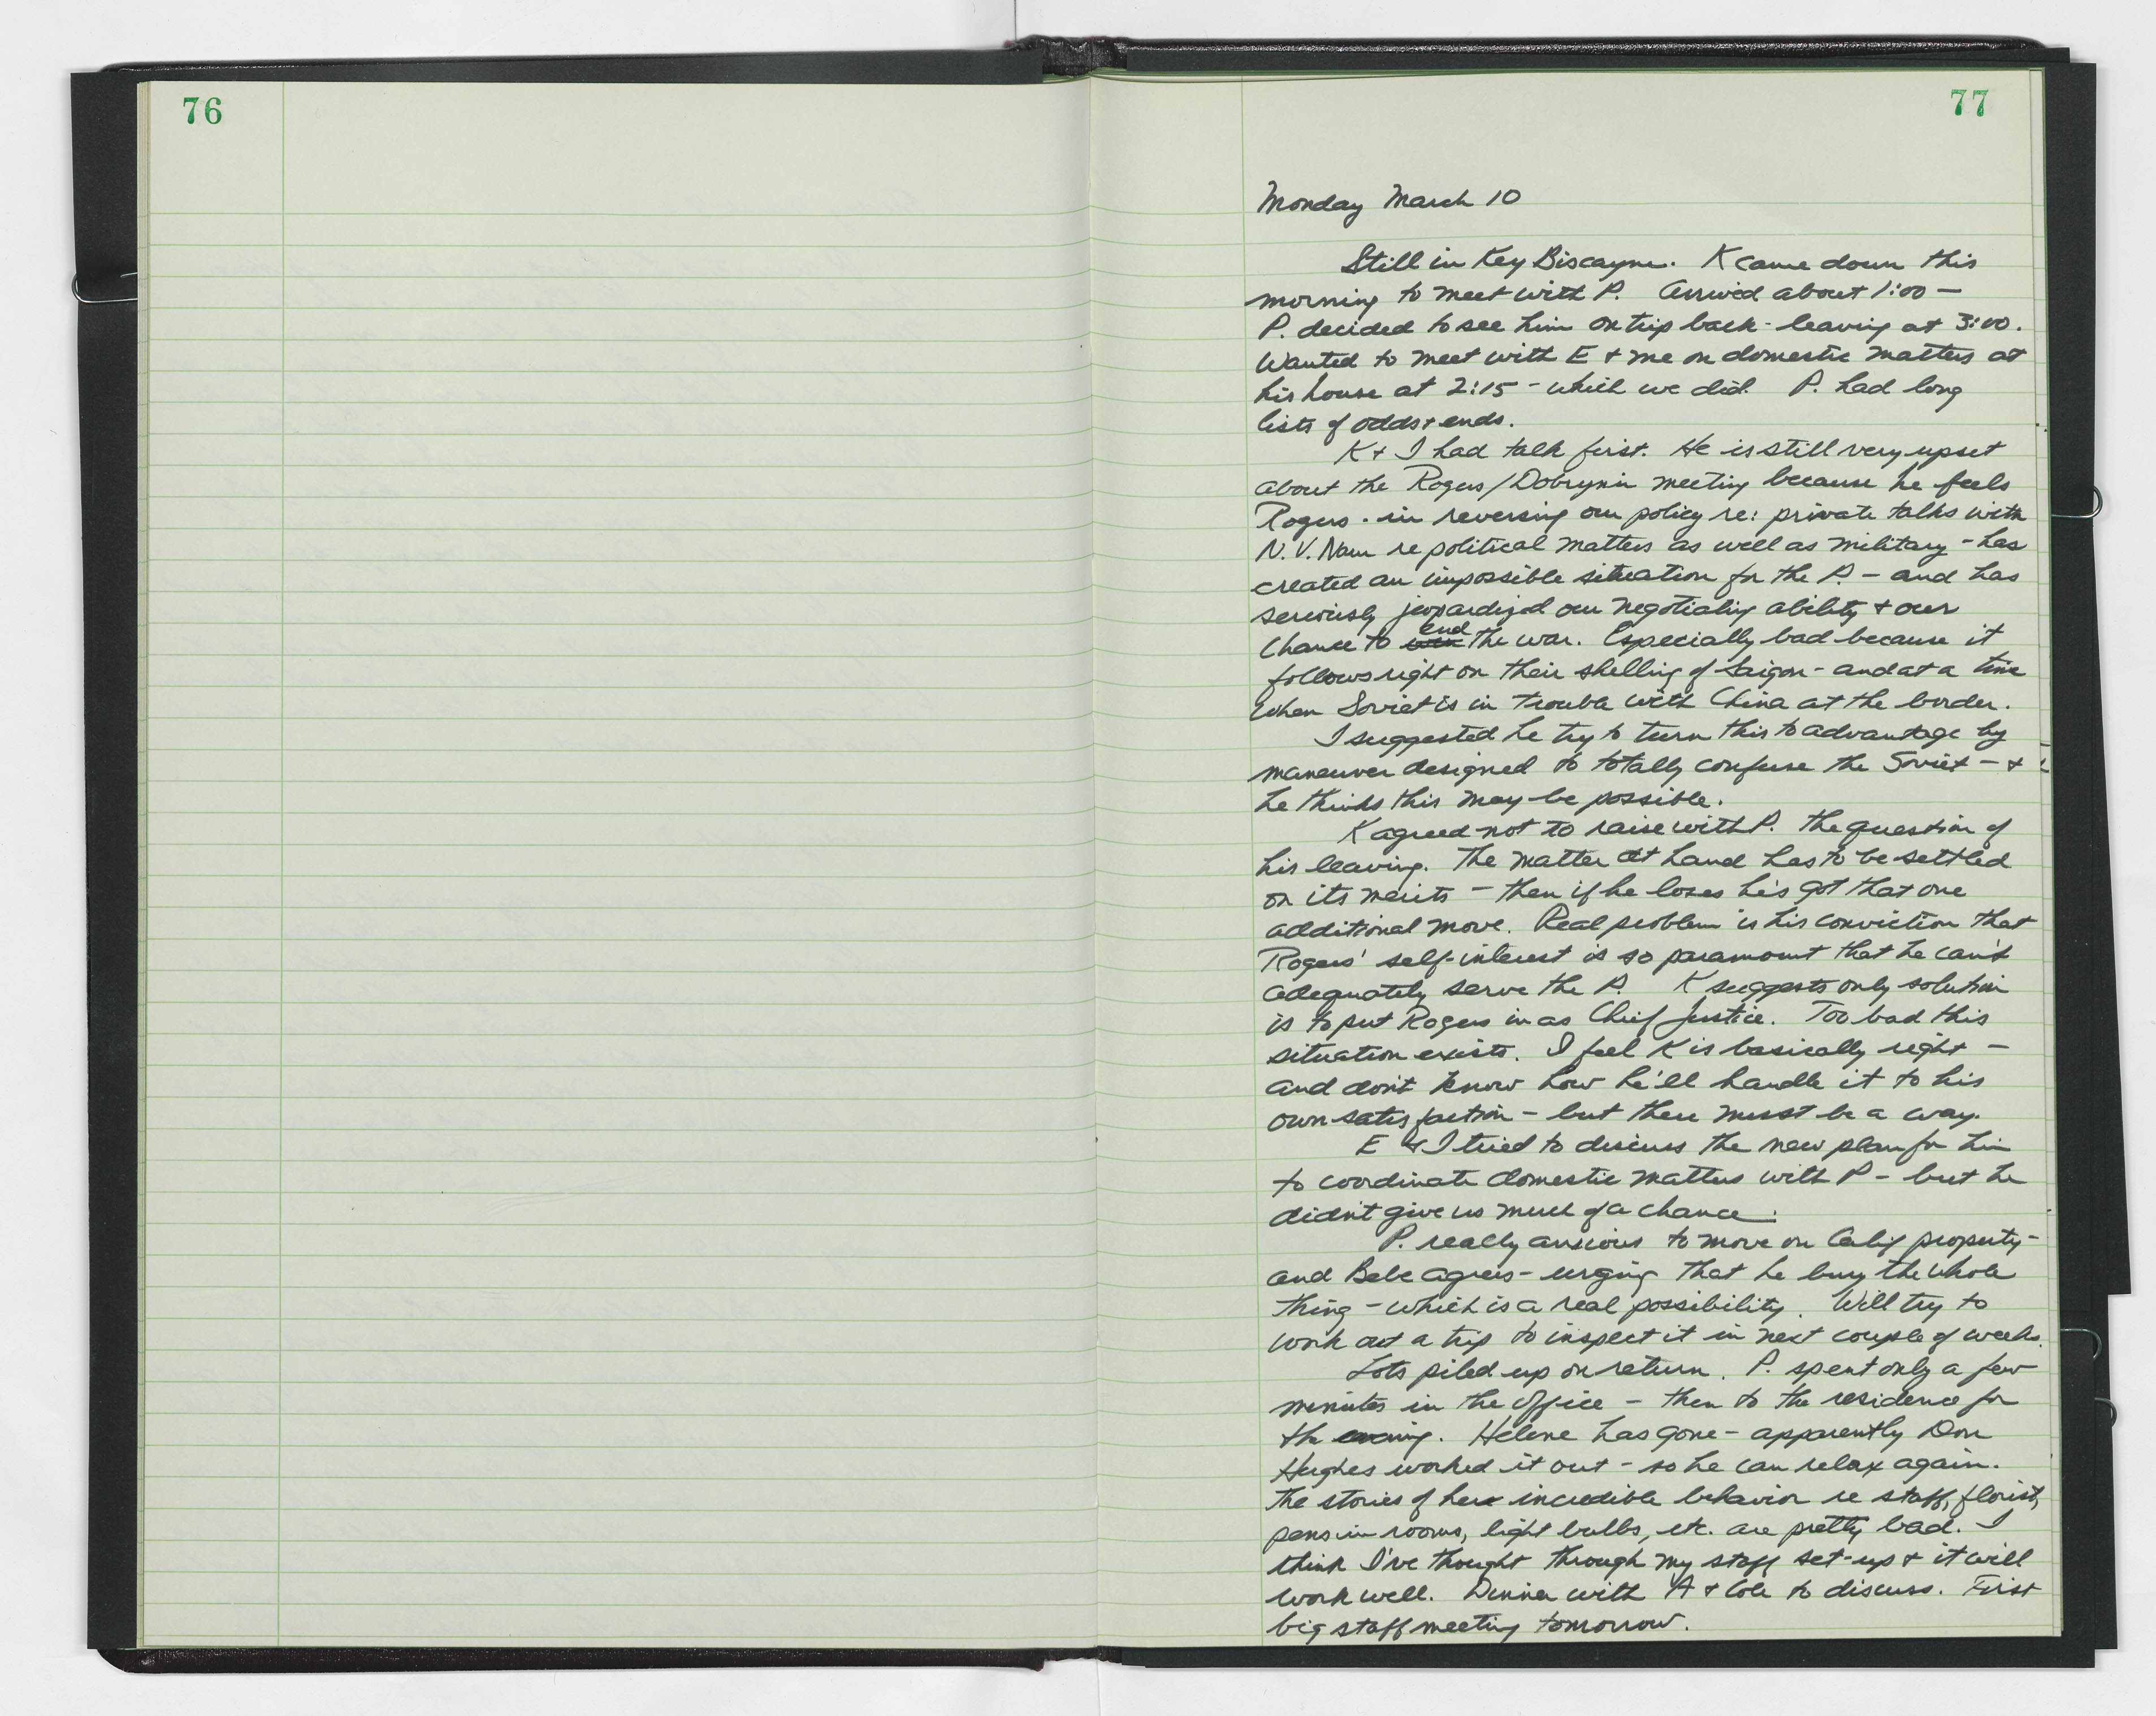 76
77
Monday March 10
Still in Key Biscayne. K came down this
morning to meet with P. Arrived about 1:00 —
P. decided to see him on trip back - leaving at 3:00.
Wanted to meet with E & me on domestic matters at
his house at 2:15 - which we did. P. had long
lists of odds & ends.
K & I had talk first. He is still very upset
about the Rogers/Dobrynin meeting because he feels
Rogers - in reversing our policy re: private talks with
N.V.Nam re political matters as well as military - has
created an impossible situation for the P. - and has
seriously jeopardized our negotiating ability & our
chance to win end the war. Especially bad because it
follows right on their shelling of Saigon - and at a time
when Soviet is in trouble with China at the border.
I suggested he try to turn this to advantage by
maneuver designed to totally confuse the Soviet — &
he thinks this may be possible.
K agreed not to raise with P. the question of
his leaving. The matter at hand has to be settled
on its merits - then if he loses he's got that one
additional move. Real problem is his conviction that
Rogers' self-interest is so paramount that he can't
adequately serve the P. K suggests only solution
is to put Rogers in as Chief Justice. Too bad this
situation exists. I feel K is basically right —
and don't know how he'll handle it to his
own satisfaction - but there must be a way.
E & I tried to discuss the new plan for him
to coordinate domestic matters with P - but he
didn't give us much of a chance.
P. really anxious to move on Calif property -
and Bebe agrees - urging that he buy the whole
thing - which is a real possibility. Will try to
work out a trip to inspect it in next couple of weeks.
Lots piled up on return. P. spent only a few
minutes in the office - then to the residence for
the evening. Helene has gone - apparently Don
Hughes worked it out - so he can relax again.
The stories of her incredible behavior re staff, florist,
pens in rooms, light bulbs, etc. are pretty bad. I
think I've thought through my staff set-up & it will
work well. Dinner with A & Cole to discuss. First
big staff meeting tomorrow.